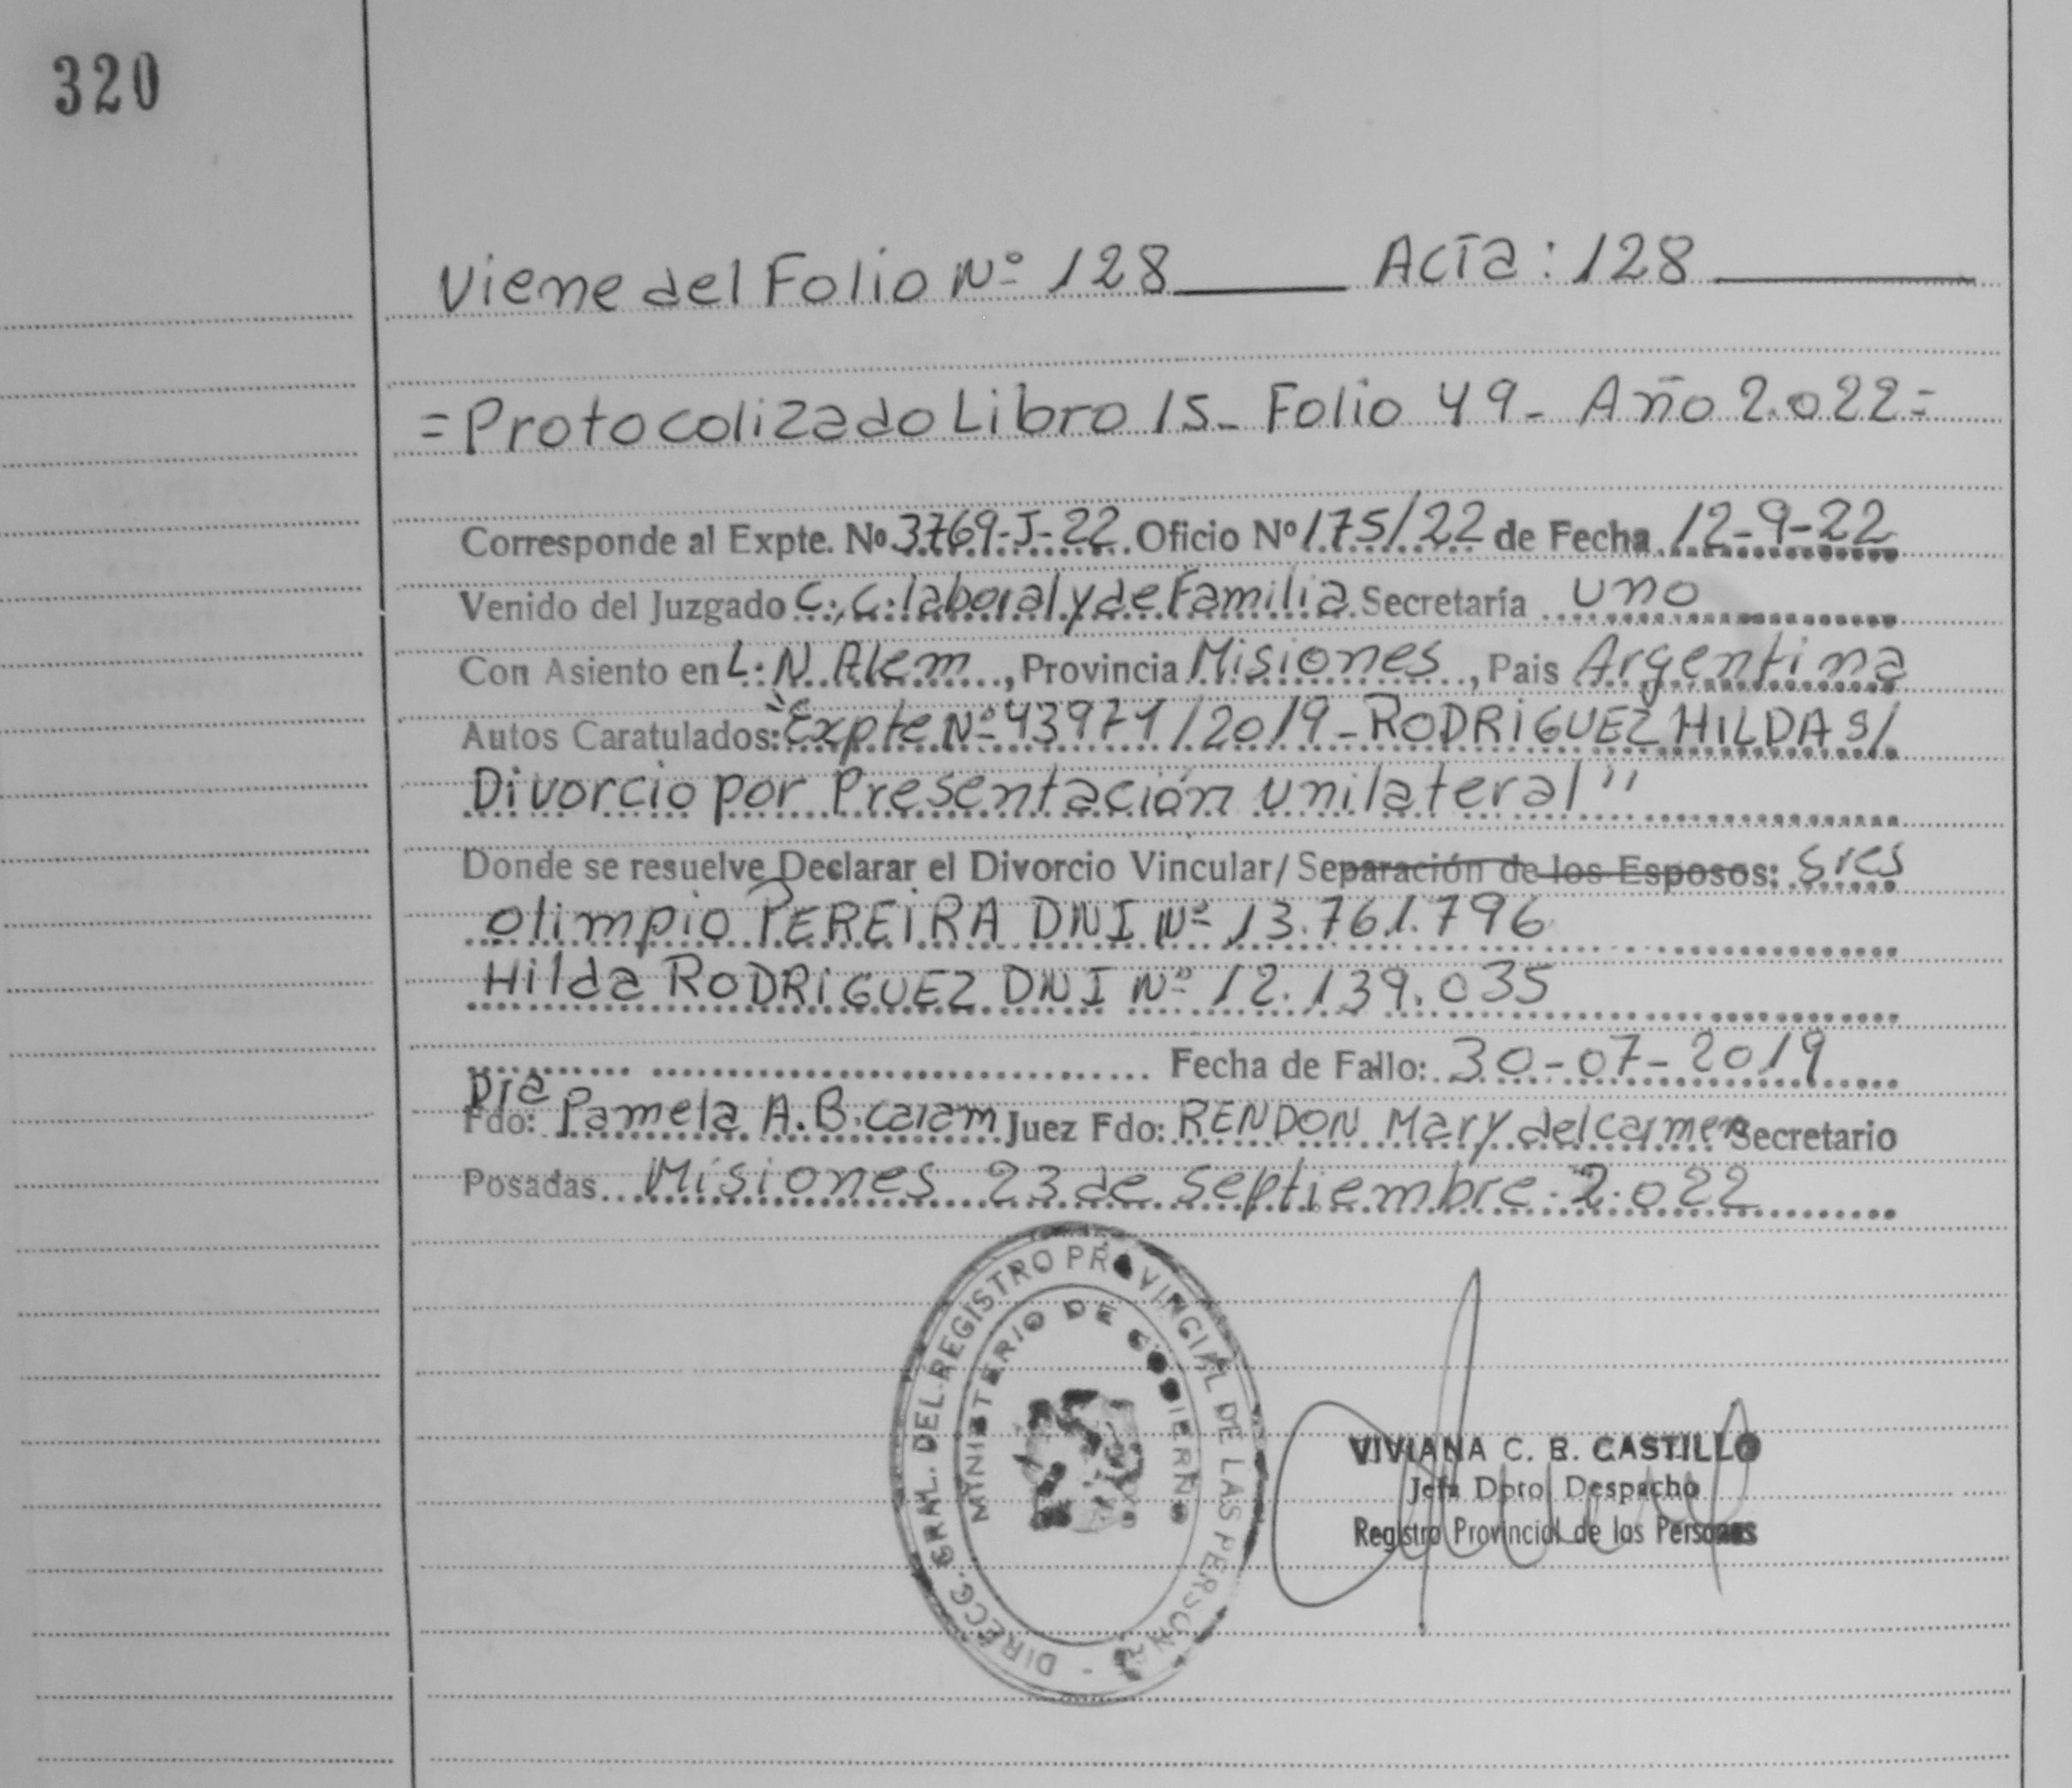 320
Viene del Folio Nº 128 Acta: 128
=Protocolizado Libro 15_ Folio 49_ Año 2.022=
Corresponde al Expte. Nº 3769-J-22 Oficio Nº 175/22 de Fecha 12-9-22
Venido del Juzgado C.,C.laboral y de Familia Secretaría uno
Con Asiento en L.N. Alem, Provincia Misiones, Pais Argentina
Autos Caratulados: "Expte Nº 43971/2019_RODRIGUEZ HILDA S/
Divorcio por Presentación unilateral"
Donde se resuelve Declarar el Divorcio Vincular/ Separación de los Esposos: Sres
Olimpio PEREIRA DNI Nº 13.761.796
Hilda RODRIGUEZ DNI Nº 12.139.035
Fecha de Fallo: 30-07-2019
Dra
Fdo: Pamela A.B. Caram Juez Fdo: RENDON Mary del carmen Secretario
Posadas Misiones 23 de septiembre 2.022
DIRECC. GRAL. DEL REGISTRO PROVINCIAL DE LAS PERSONAS -
MINISTERIO DE GOBIERNO
VIVIANA C. B. CASTILLO
Jefa Dpto. Despacho
Registro Provincial de las Personas